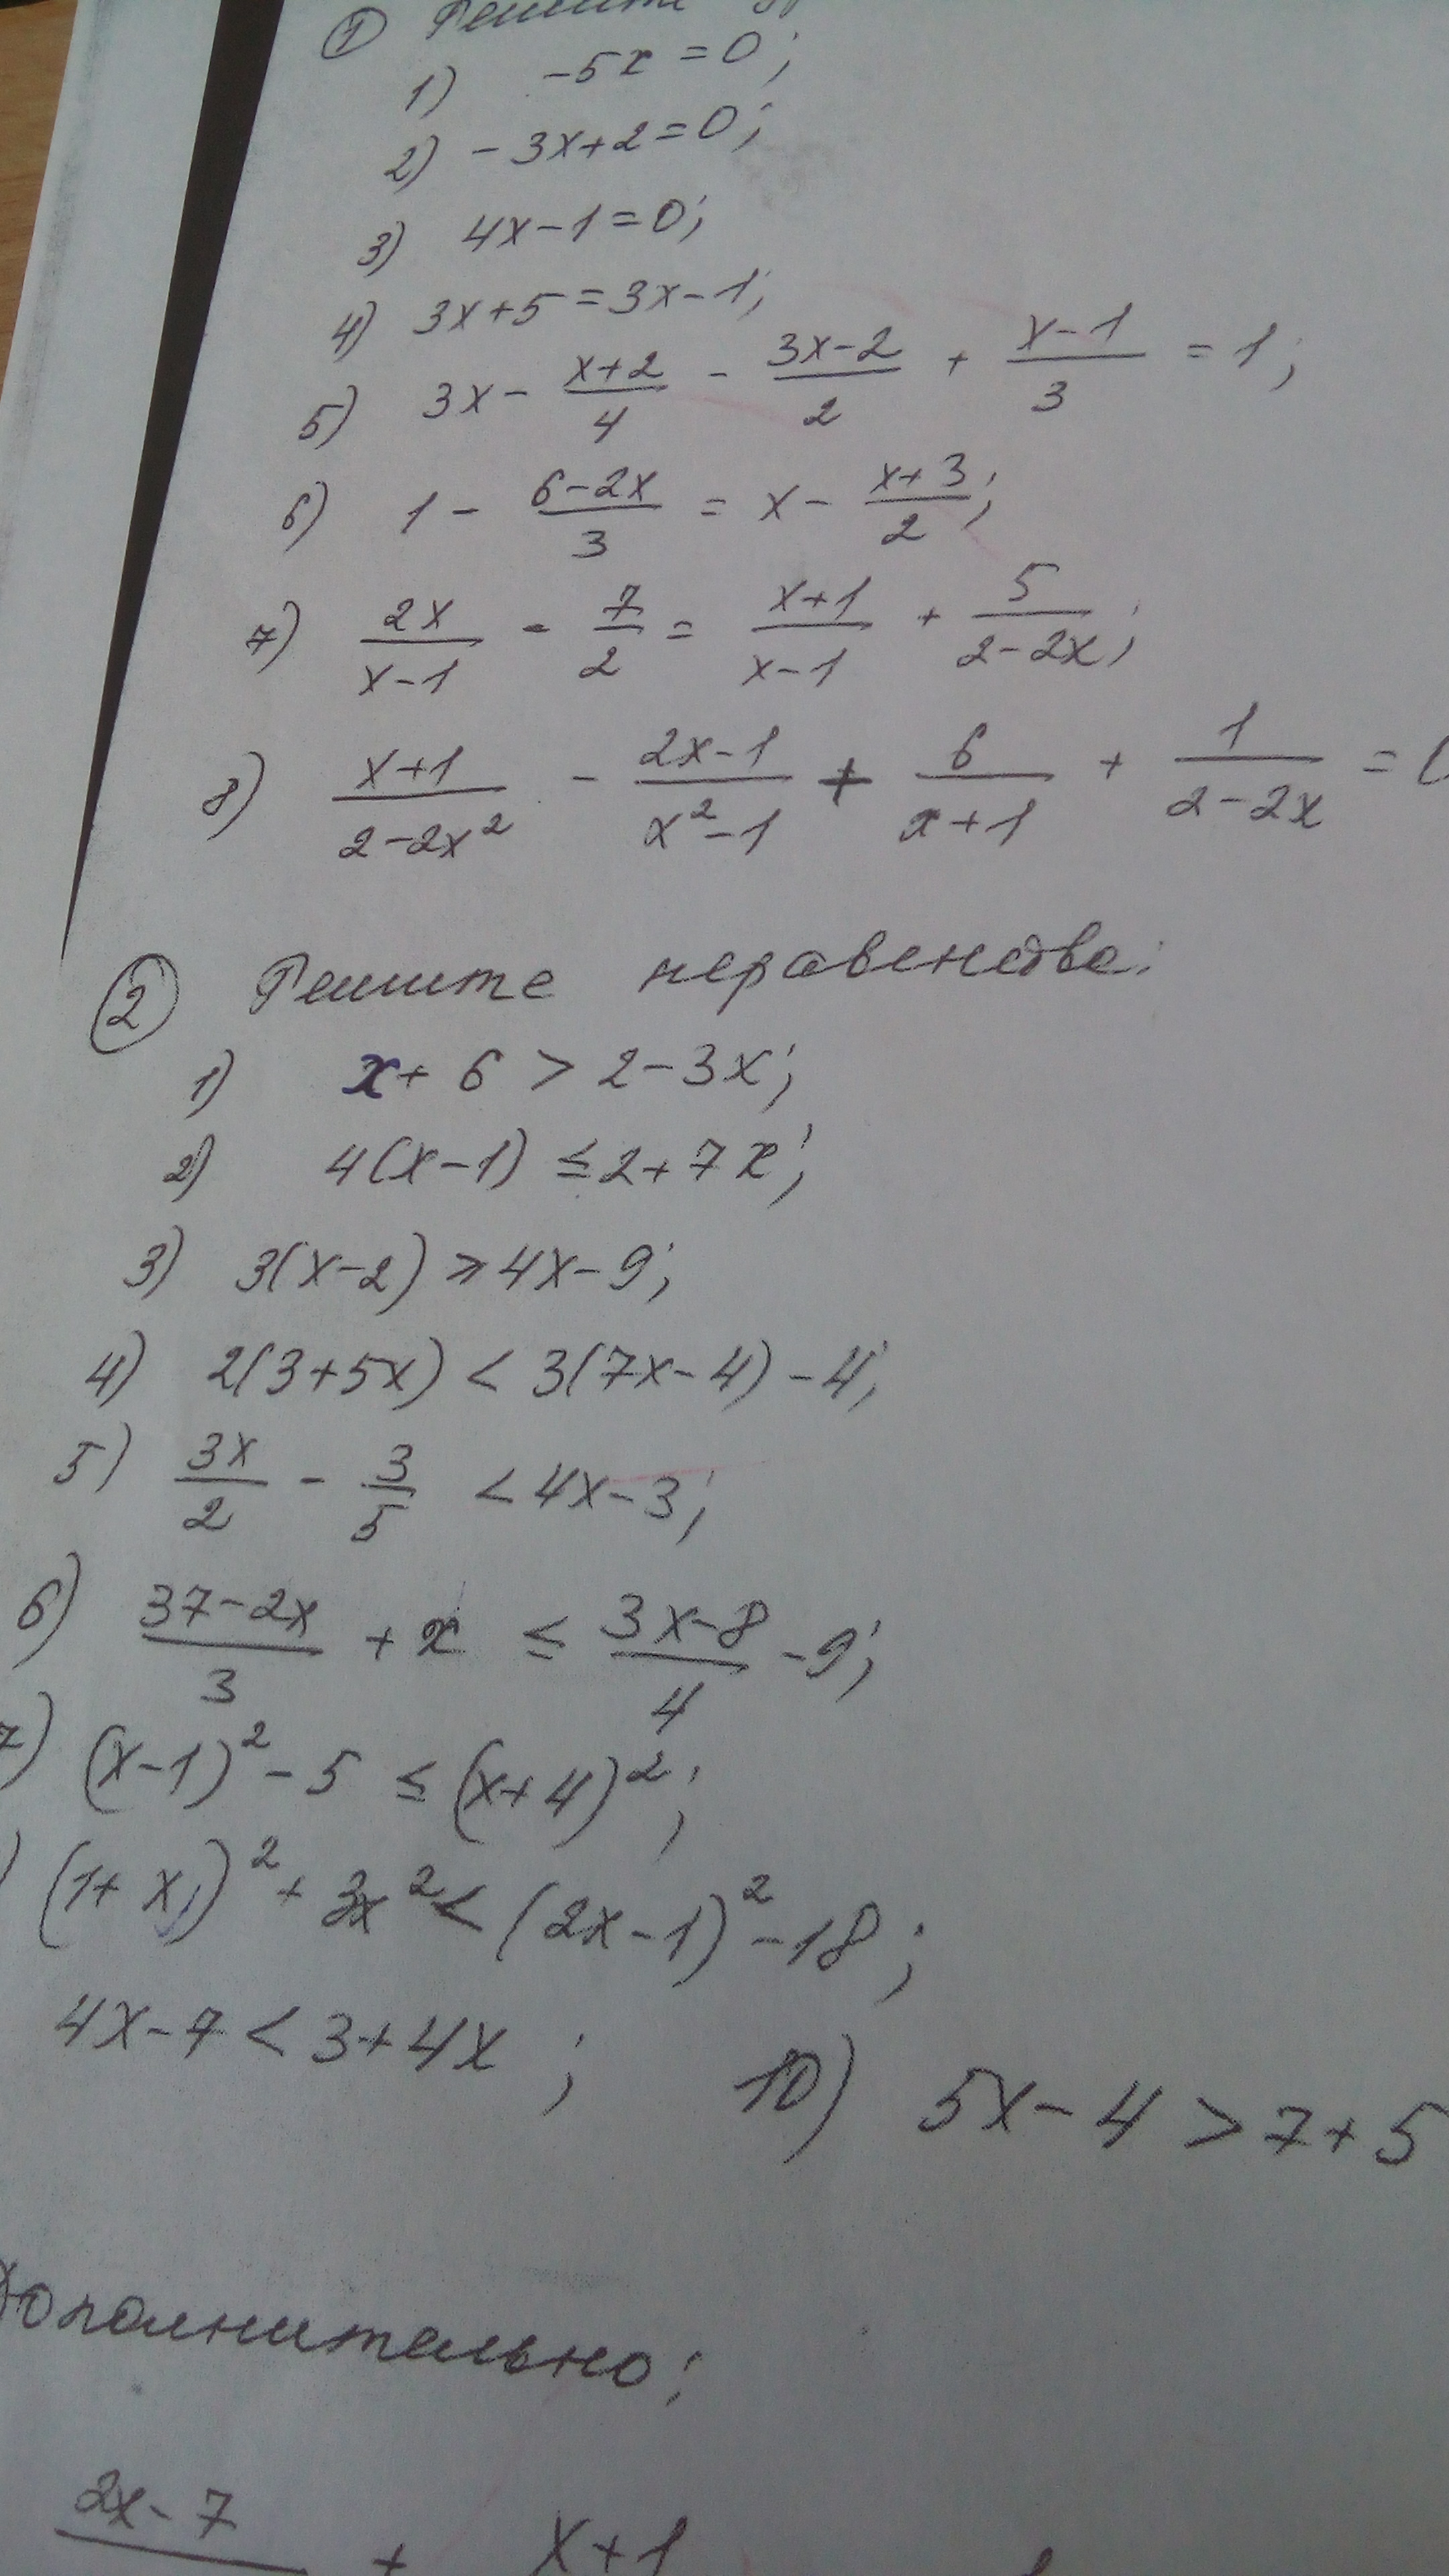 ① Решите
1) -5x = 0;
2) -3x+2=0;
3) 4x-1=0;
4) 3x+5=3x-1;
5) 3x - (x+2)/4 - (3x-2)/2 + (x-1)/3 = 1;
6) 1 - (6-2x)/3 = x - (x+3)/2;
7) 2x/(x-1) - 7/2 = (x+1)/(x-1) + 5/(2-2x);
8) (x+1)/(2-2x²) - (2x-1)/(x²-1) + 6/(x+1) + 1/(2-2x) =
② Решите неравенства:
1) x+6 > 2-3x;
2) 4(x-1) ≤ 2+7x;
3) 3(x-2) ≥ 4x-9;
4) 2(3+5x) < 3(7x-4)-4;
5) 3x/2 - 3/5 < 4x-3;
6) (37-2x)/3 + x ≤ (3x-8)/4 - 9;
7) (x-1)²-5 ≤ (x+4)²;
) (1+x)²+3x² < (2x-1)²-18;
4x-7 < 3+4x; 10) 5x-4 > 7+5
Дополнительно:
2x-7 + x+1